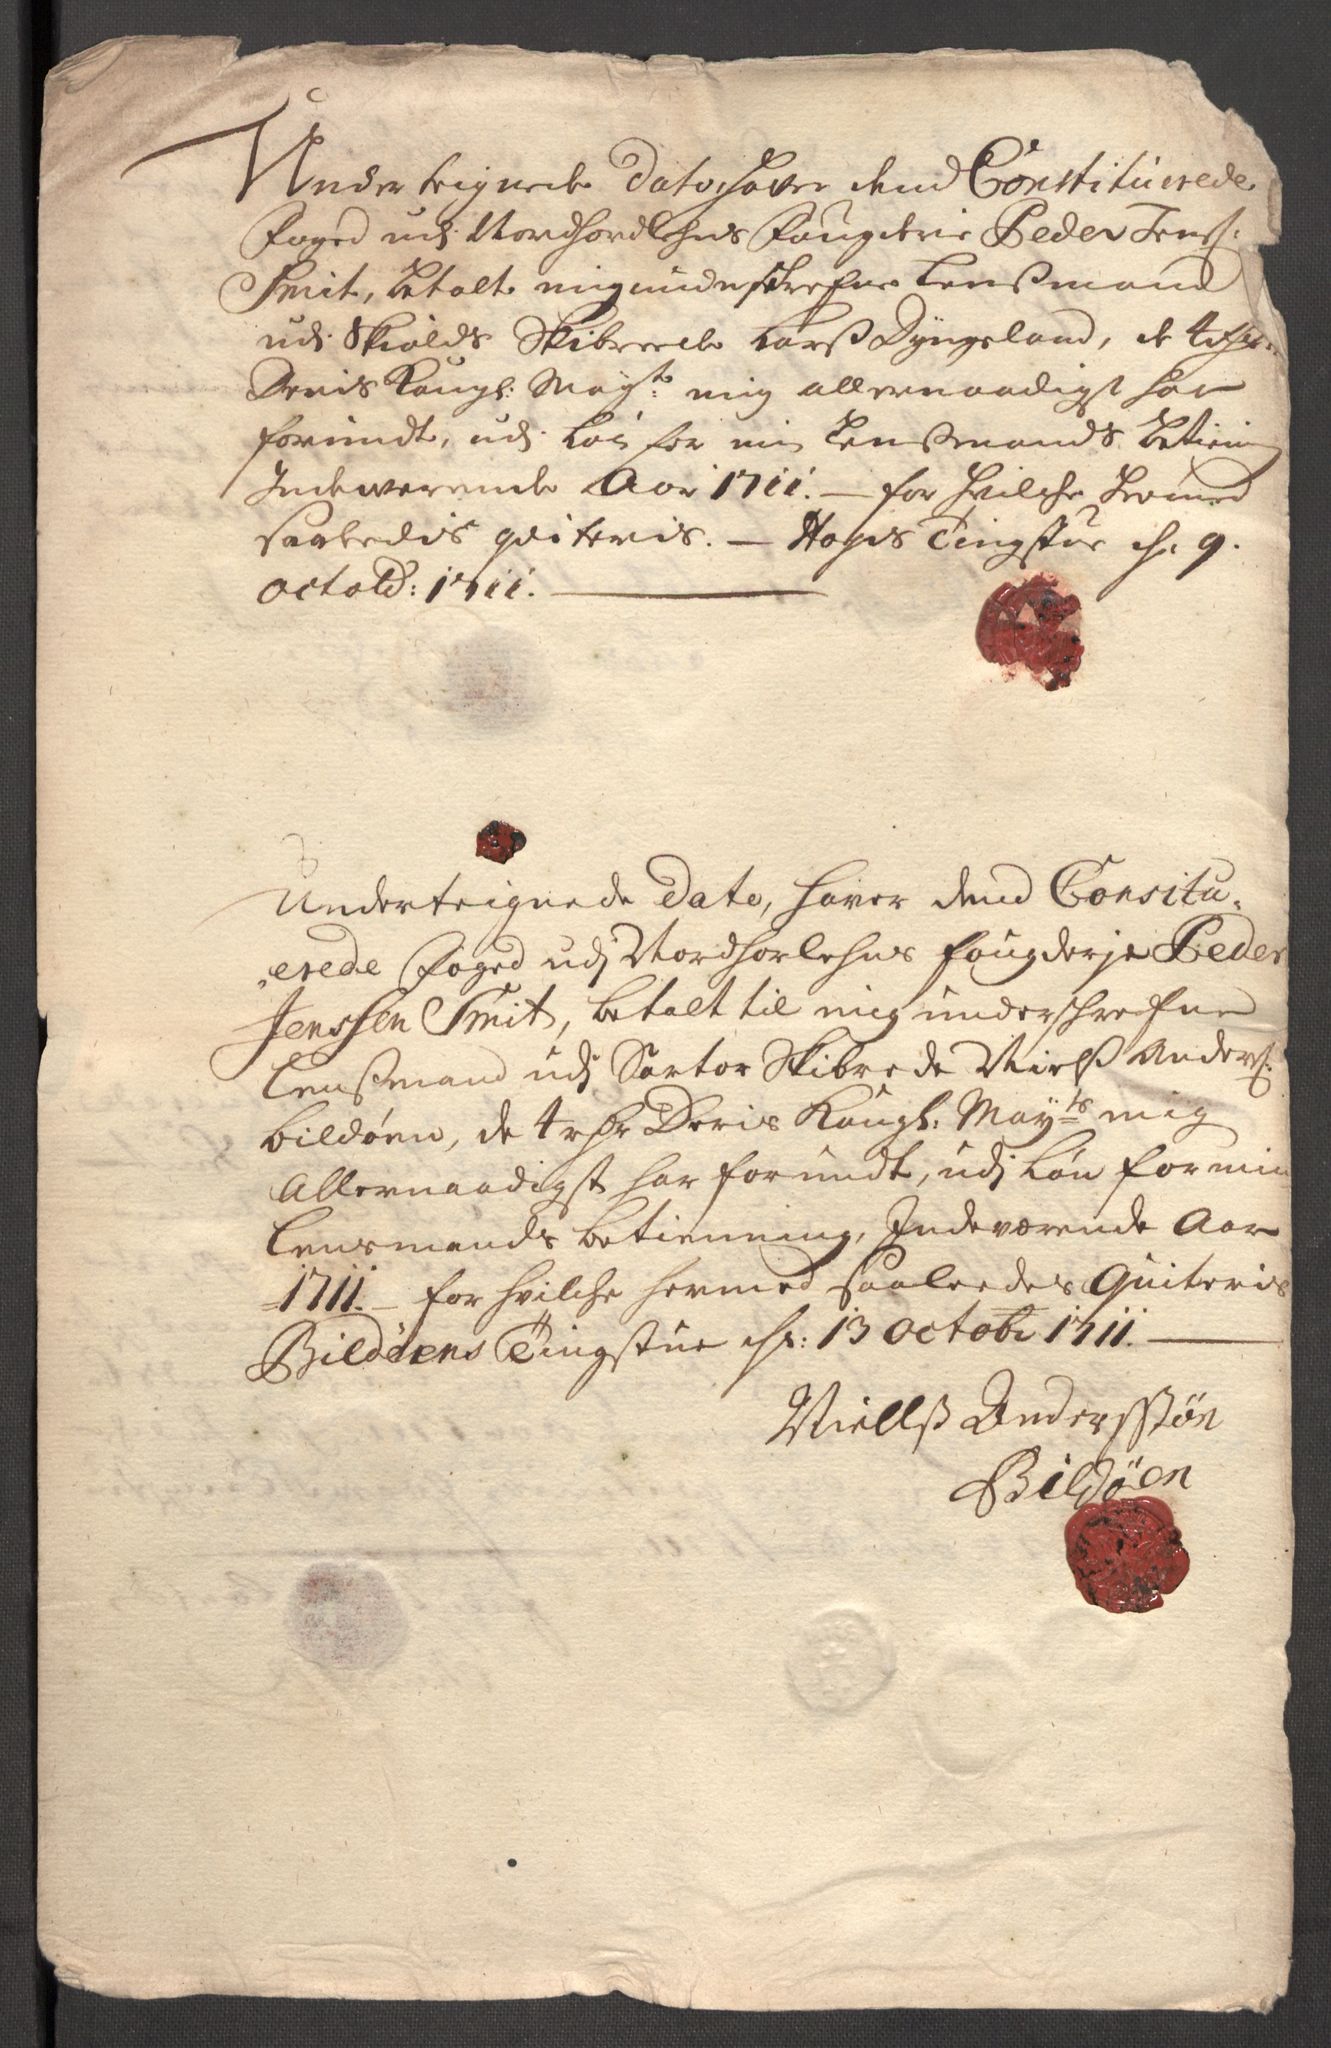 Underteignede Dato, haver dend Constituerede
Foged udj Nordhordlehns Fougderie Peder Jenss:
Smit, betalt mig underschrefne Lensmand
udj Skiolds Skibrede Larss Dyngeland, de 4 rdr
Deris Kongl: Mayts: mig allernaadigst har
forundt, udj Løn for min Lensmands Betiening
Indeværende Aar 1711. — for hvilche hermed
saaledis qviteris. — Hops Tingstue d. 9.
octobr: 1711.
Underteignede Dato, haver dend Consitu,
,erede Foged udj Nordhorlehns Fougderje Peder
Jenssen Smit, betalt til mig underschrefne
Lensmand udj Sartor Skibrede Nielss Anderss:
Bildøen, de 4 rdr Deris Kongl: Mayts mig
Allernaadigst har forundt, udj Løn for min
Lensmands betienning, Indeværende Aar
1711. — for hvilche hermed saaledes Quiteris
Bildøens Tingstue d: 13 octobr 1711.
Niellss Anderssøn
Bildøen